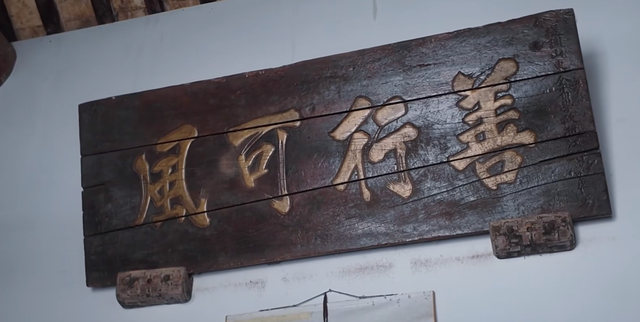 善行可風